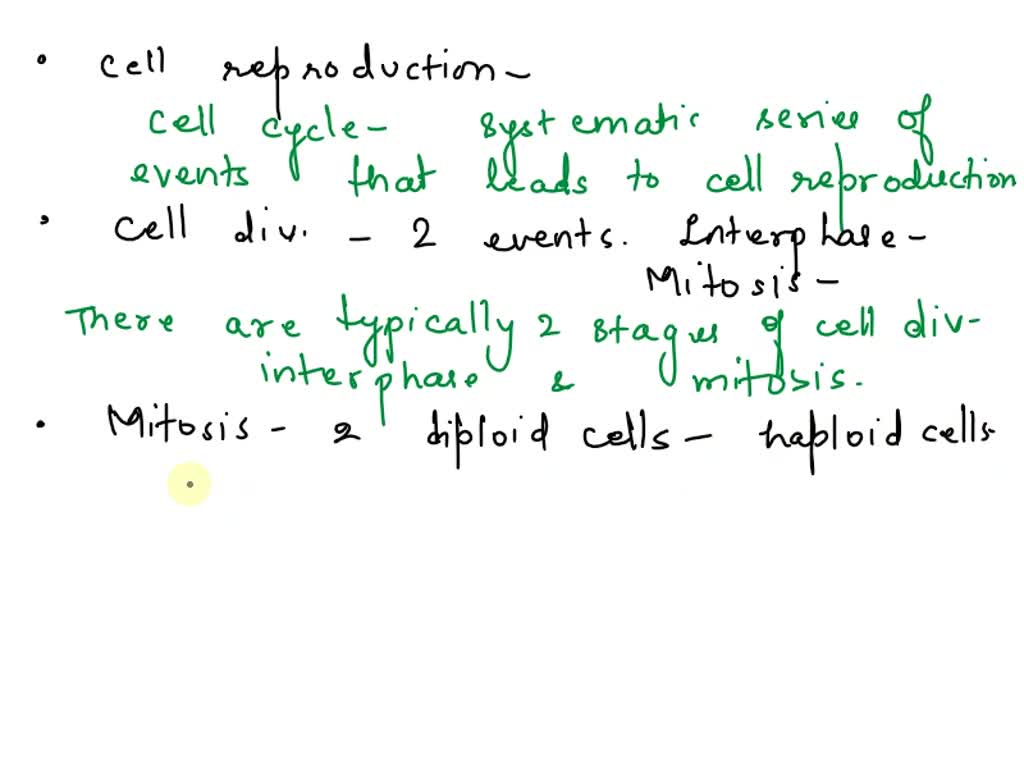 • cell reproduction -
cell cycle - systematic series of
events that leads to cell reproduction
• Cell div. - 2 events. Interphase -
Mitosis -
There are typically 2 stages of cell div -
interphase & mitosis.
• Mitosis - 2 diploid cells - haploid cells